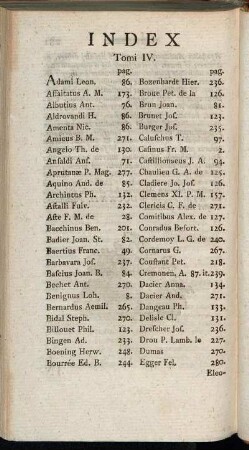 INDEX
Tomi IV.
pag.
Adami Leon. 86.
Affaitatus A. M. 173.
Albutius Ant. 76.
Aldrovandi H. 86.
Amenta Nic. 86.
Amicus B. M. 271.
Angelo Th. de 130.
Ansaldi Anf. 71.
Aprutanæ P. Mag. 277.
Aquino Aud. de 85.
Archintus Ph. 132.
Assalli Fulv. 232.
Aste F. M. de 28.
Bacchinus Ben. 201.
Badier Joan. St. 82.
Baertius Franc. 49.
Barbavara Jos. 237.
Bascius Joan. B. 84.
Bechet Ant. 270.
Benignus Loh. 8.
Bernardus Aemil. 265.
Bidal Steph. 270.
Billouet Phil. 123.
Bingen Ad. 233.
Boening Herw. 248.
Bourrée Ed. B. 244.
pag.
Bozenhardt Hier. 236.
Broue Pet. de la 126.
Brun Joan. 81.
Brunet Jos. 123.
Burger Jos. 235.
Caluschus T. 97.
Casinus Fr. M. 2.
Castillionseus J. A. 94.
Chaulieu G. A. de 125.
Cladiere Jo. Jos. 126.
Clemens XI. P. M. 157.
Clericis C. F. de 271.
Comitibus Alex. de 127.
Conradus Befort. 126.
Cordemoy L. G. de 240.
Cornarus G. 267.
Constant Pet. 218.
Cremonen, A. 87. it. 239.
Dacier Anna. 134.
Dacier And. 271.
Dangeau Ph. 133.
Delisle Cl. 131.
Drescher Jos. 236.
Drou P. Lamb. le 227.
Dumas 270.
Egger Fel. 280.
Eleo-